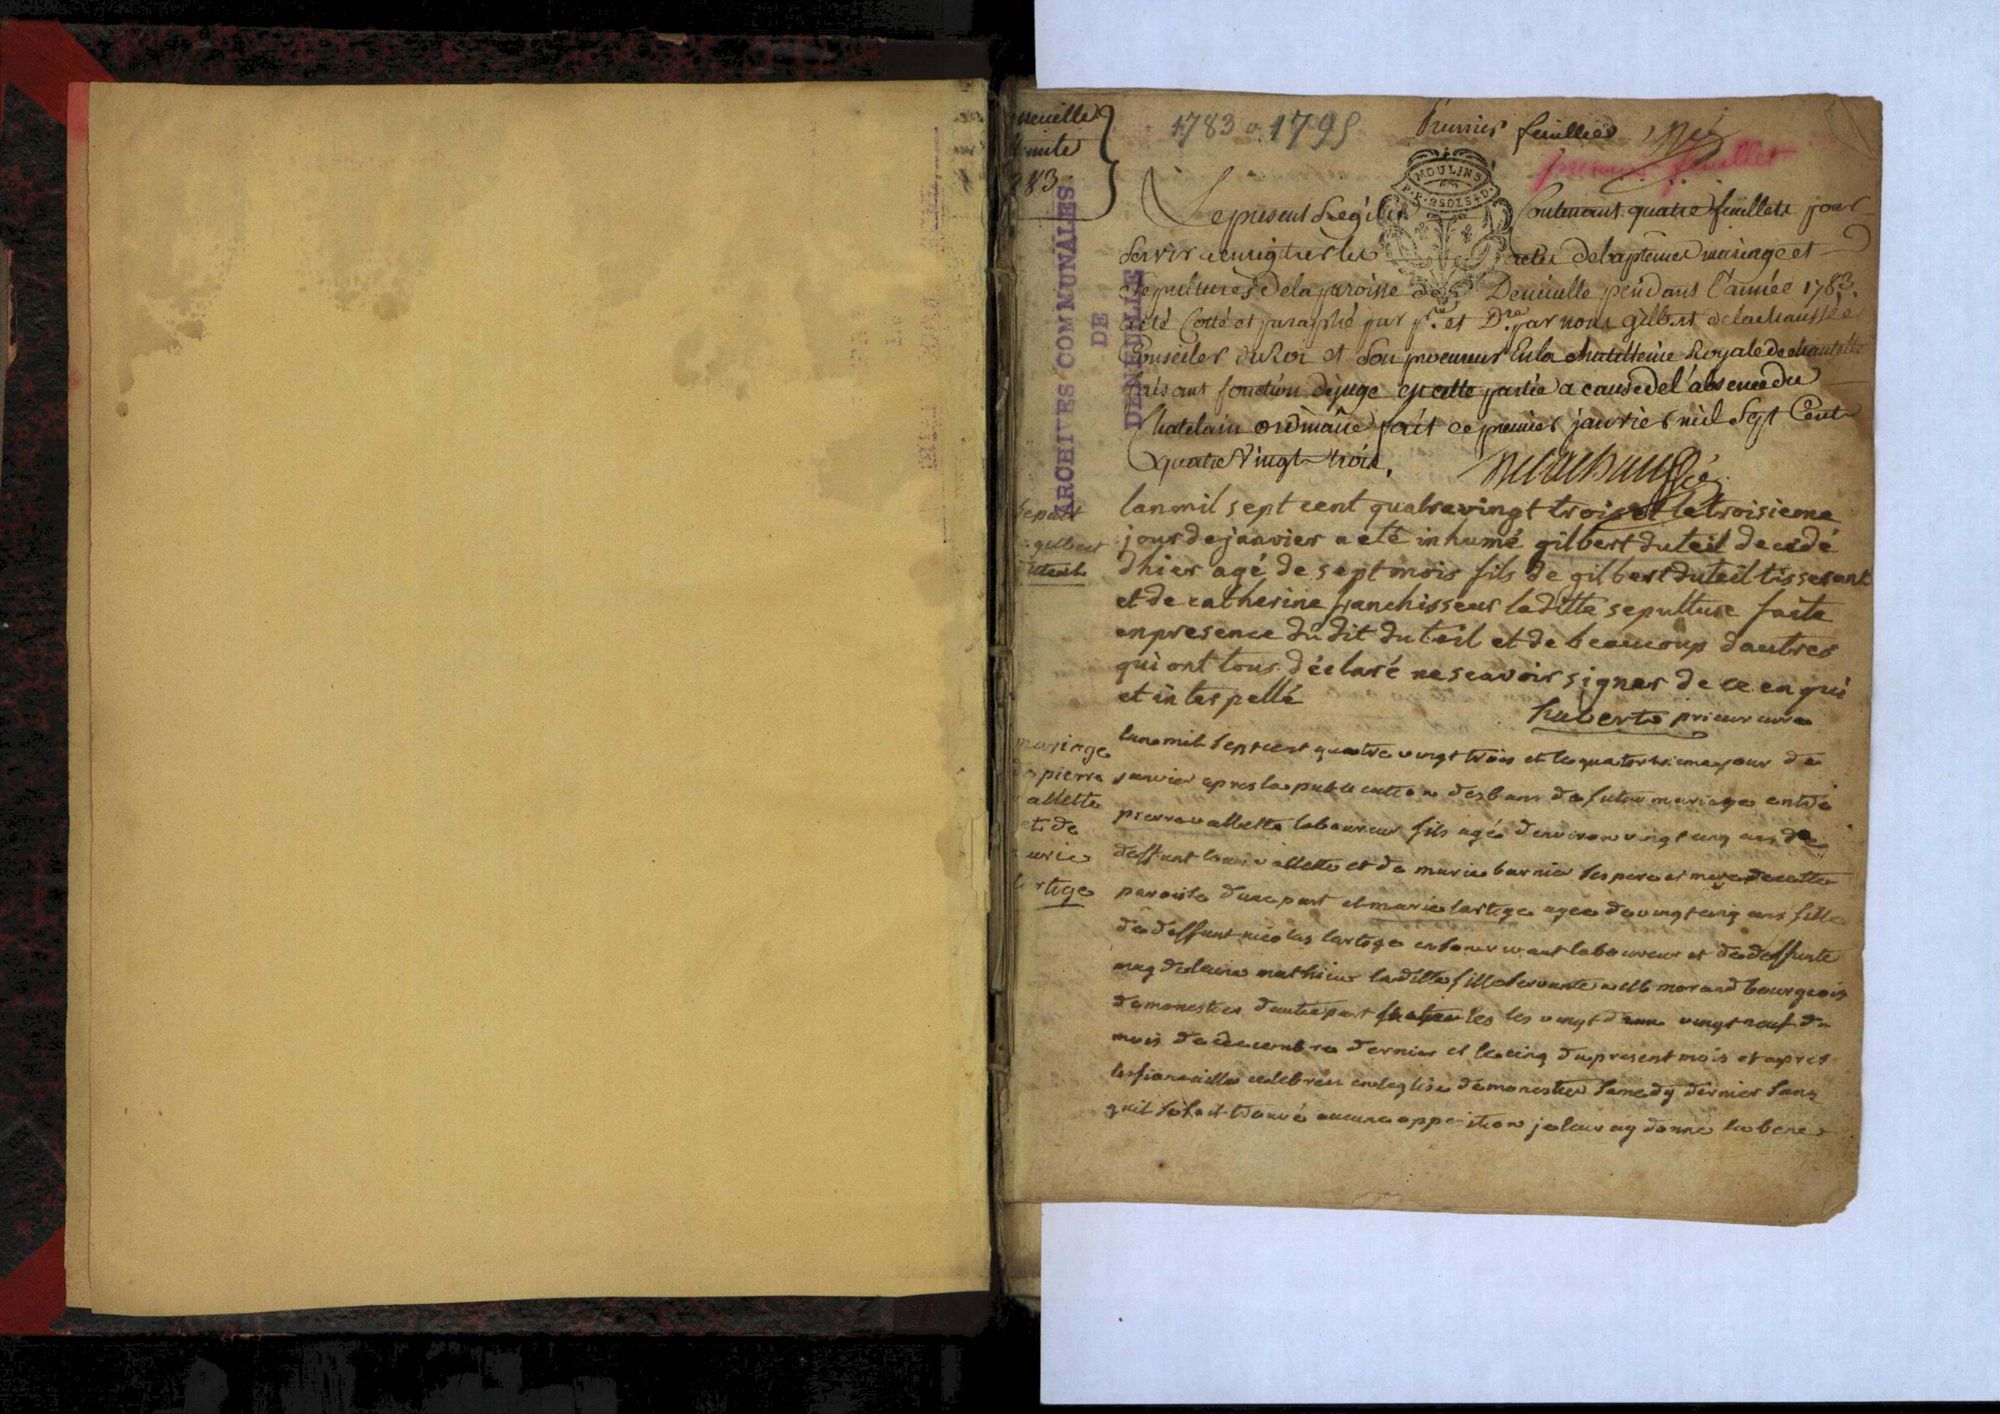 1783 a 1795
Premier feuillet
premier feuillet
MOULINS
ARCHIVES COMMUNALES
DE
DENEUILLE
Le present Regitre Contenant quatre feuillets pour
Servir a enregitrer les actes de baptemes mariage et
Sepultures de la paroisse de Deneuille pendant l'année 1783.
a été Cotté et paraphé par pre. et Dre. par nous gilbert delachaussée
Conseiler du Roi et Son procureur En la chatellenie Royale de chantelle
faisant fonction de juge en cette partie a cause de l'absence du
Chatelain ordinaire fait ce premier janvier mil Sept Cent
quatre Vingt trois.
Delachaussée
sepult
gilbert
duteil
lan mil sept cent quatre vingt trois et le troisieme
jour de janvier a eté inhumé gilbert duteil decedé
dhier agé de sept mois fils de gilbert duteil tisserant
et de catherine franchisseur laditte sepulture faite
en presence dudit duteil et de beaucoup dautres
qui ont tous déclaré ne scavoir signer de ce enqui
et interpellé
huberto prieur curé
mariage
pierre
allette
et de
arie
lartige
lan mil sept cent quatre vingt trois et le quatorzieme jour de
janvier apres la publication des bans de futur mariage entre
pierre vallette laboureur fils agé denviron vingt cinq ans de
deffunt louis vallette et de marie barnier ses pere et mere de cette
paroisse dune part et marie lartige agée de vingt cinq ans fille
de deffunt nicolas lartige en son vivant laboureur et de deffunte
magdelaine mathieu laditte fille servante a morand bourgeois
de monestier dautre part les vingt deux vingt neuf du
mois de decembre dernier et le cinq du present mois et apres
les fiancailles celebrées en leglise de monestier samedy dernier sans
quil se soit trouvé aucune opposition je leur ay donné la bene